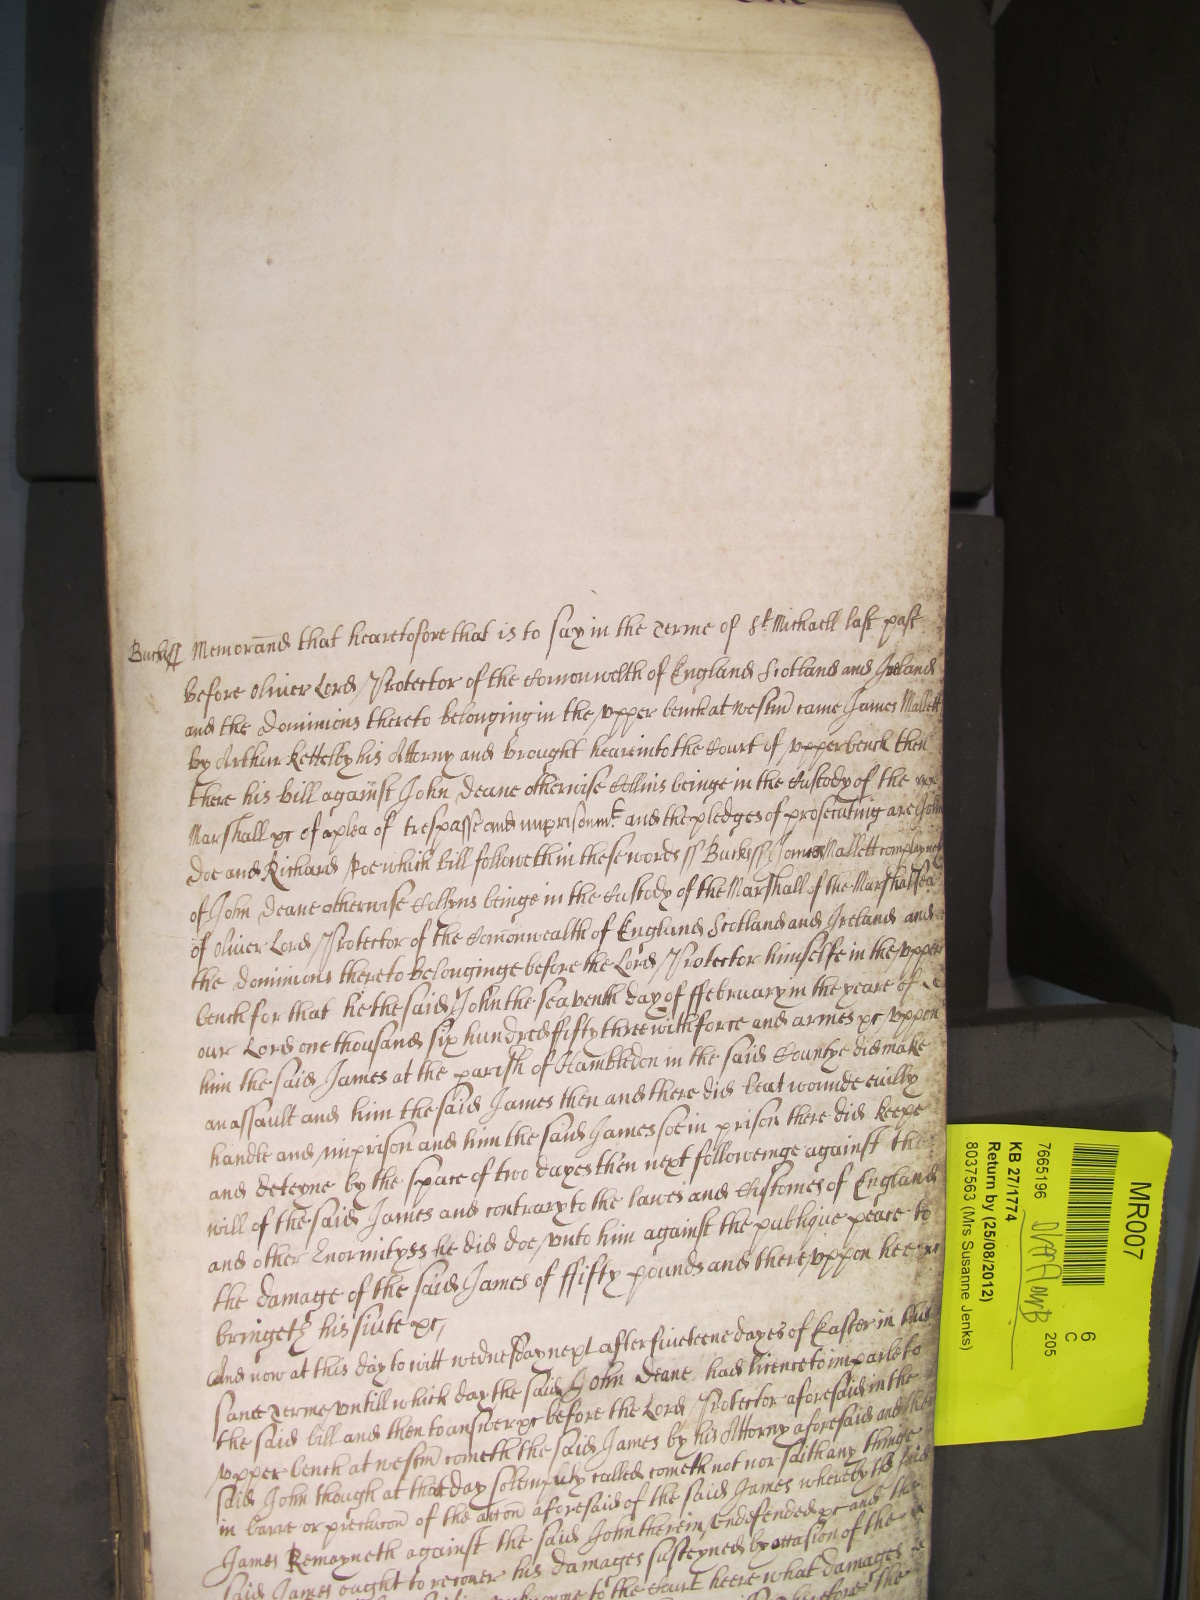 Buck ss Memorand that heareto fore that is to say in the Terme of St Michaell last past
before Oliver Lord Protector of the Comonwelth of England Scotland and Ireland
and the Dominions thereto belonging in the upper bench at westm came James Mallett
by Arthur Kettelby his Attorny and brought heare into the Court of upper bench then
there his bill against John Deane otherwise Collins beinge in the Custody of the
Marshall &c of a plea of trespasse and imprisonmt and the pledges of prosecuting are John
Doe and Richard Roe which bill followeth in these words ss Buck ss James Mallett complayneth
of John Deane otherwise Collyns beinge in the Custody of the Marshall of the Marshalsea
of Oliver Lord Protector of the Comonwealth of England Scotland and Ireland and
the Dominions thereto belonginge before the Lord Protector himselfe in the upper
bench for that he the said John the seaventh day of ffebruary in the yeare of
our Lord one thousand six hundred fifty three with force and armes &c uppon
him the said James at the parish of Hambledon in the said Countye did make
an assault and him the said James then and there did beat wounde evilly
handle and imprison and him the said James soe in prison there did keepe
and deteyne by the space of two dayes then next followeinge against the
will of the said James and contrary to the lawes and Customes of England
and other Enormityes he did doe unto him against the publique peace to
the damage of the said James of ffifty pounds and there uppon hee
bringeth his suite &c
And now at this day to witt wednesday next after fiveteene dayes of Easter in this
same Terme untill which day the said John Deane had licence to imparle to
the said bill and then to answer &c before the Lord Protector aforesaid in the
upper bench at westm cometh the said James by his Attorny aforesaid and the
said John though at that day solempnly called cometh not nor saith any thinge
in barre or preclucon of the accon aforesaid of the said James whereby the said
James Remayneth against the said John therein undefended &c and the
said James ought to recover his damages susteyned by occasion of the
to the Court heere what damages
therefore the
MR007
6
C
205
7665196
KB 27/1774
Return by (25/08/2012)
8037563 (Mrs Susanne Jenks)